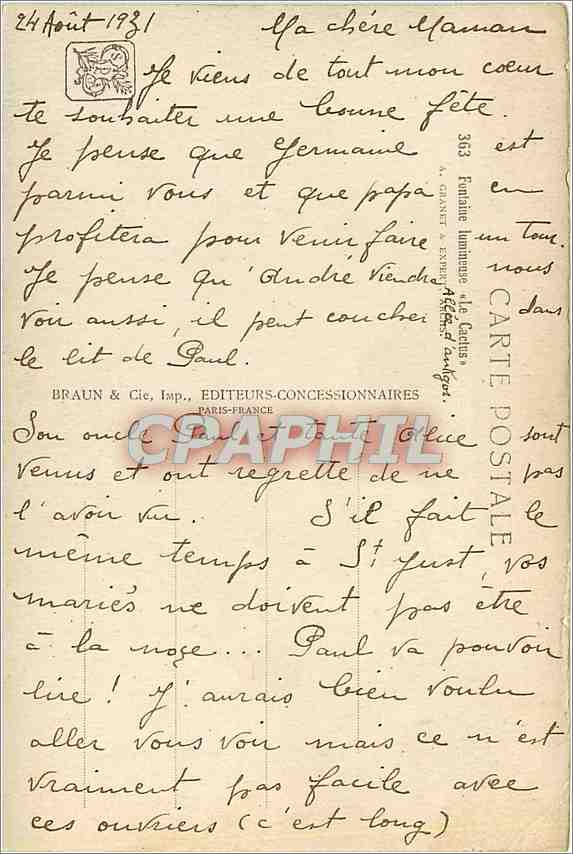 24 Août 1931 Ma chère Maman
Je viens de tout mon cœur
te souhaiter une bonne fête.
Je pense que Germaine est
parmi vous et que papa en
profitera pour venir faire un tour.
Je pense qu'André viendra nous
voir aussi, il peut coucher dans
le lit de Paul.
363 Fontaine lumineuse «Le Cactus»
A. GRANET & EXPERT
Allée d'Antigos.
CARTE POSTALE
BRAUN & Cie, Imp., EDITEURS-CONCESSIONNAIRES
PARIS-FRANCE
CPAPHIL
Son oncle Paul et tante Alice sont
venus et ont regretté de ne pas
l'avoir vu. S'il fait le
même temps à St Just, vos
mariés ne doivent pas être
à la noce... Paul va pouvoir
lire! J'aurais bien voulu
aller vous voir mais ce n'est
vraiment pas facile avec
ces ouvriers (c'est long)